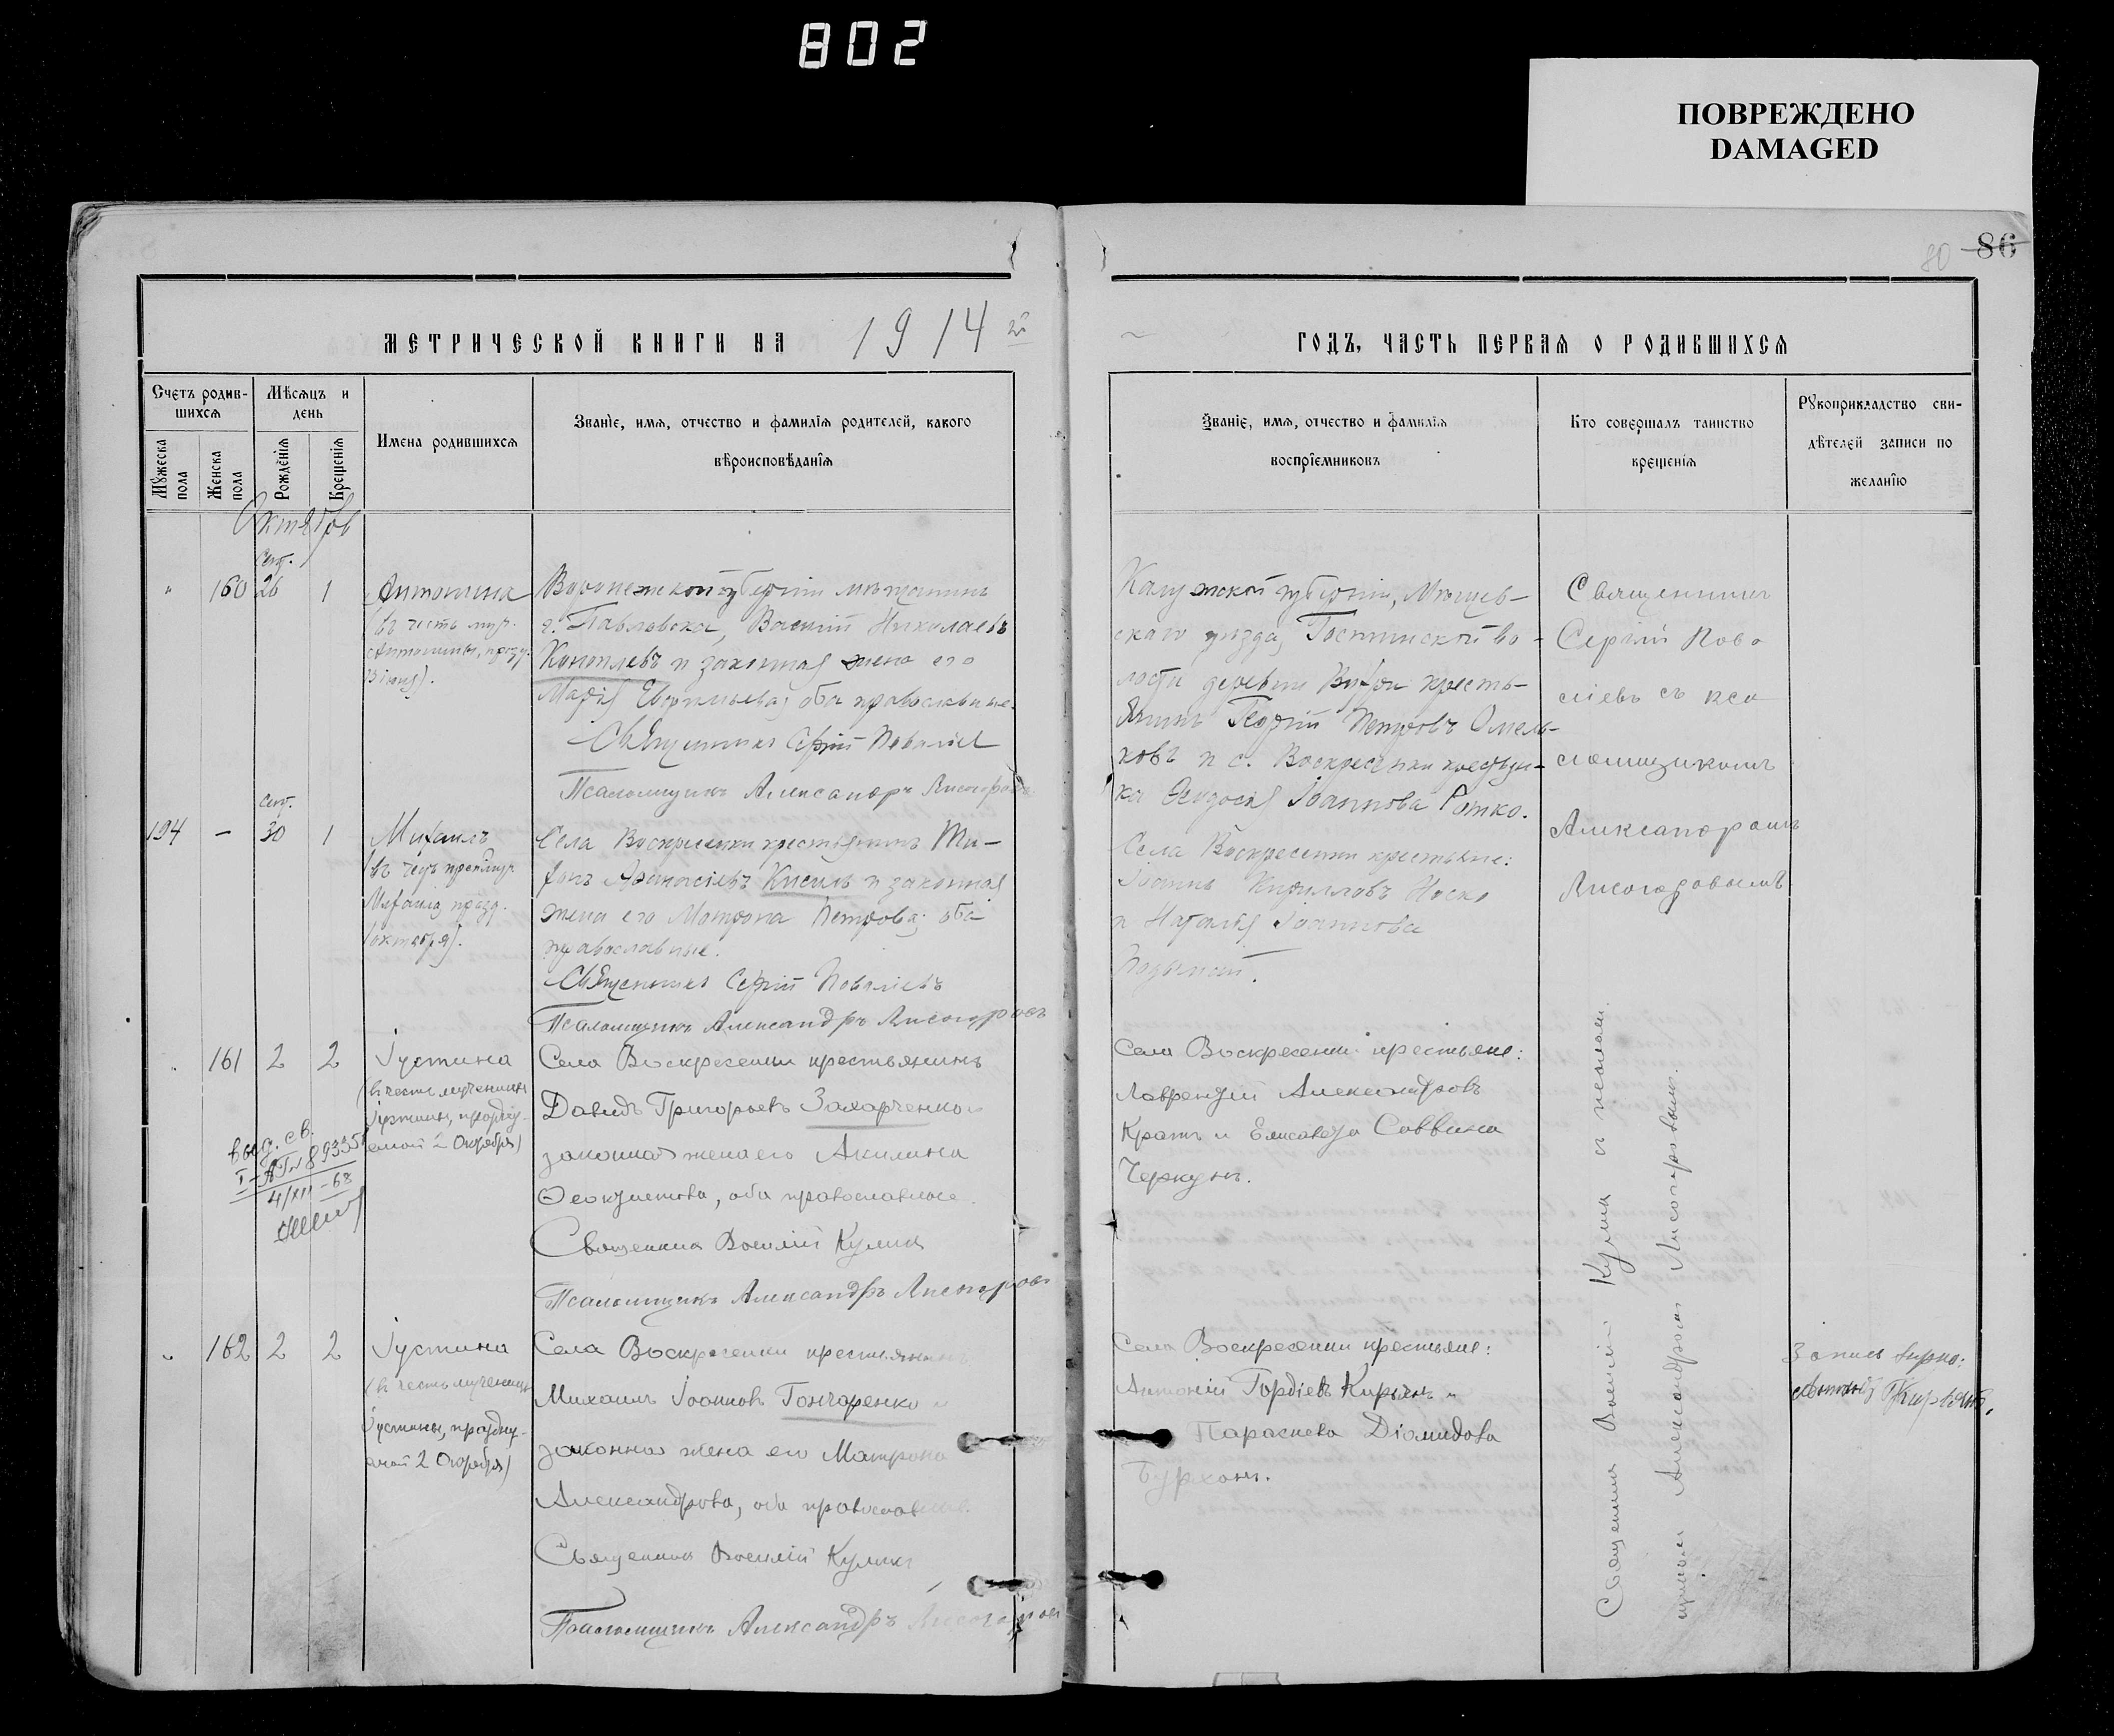 802
ПОВРЕЖДЕНО
DAMAGED
80 86
МЕТРИЧЕСКОЙ КНИГИ НА 1914 й
ГОДЪ, ЧАСТЬ ПЕРВАЯ О РОДИВШИХСЯ
Счетъ родив-
шихся
Мѣсяцъ и
день
Мужеска пола
Женска пола
Рожденїя
Крещенїя
Имена родившихся
Званїе, имя, отчество и фамилїя родителей, какого
вѣроисповѣданїя
Званїе, имя, отчество и фамилїя
воспрїемниковъ
Кто совершалъ таинство
крещенїя
Рукоприкладство сви-
дѣтелей записи по
желанїю
Октябрь
Сент.
" 160 26 1 Антонина
(въ честь муч.
Антонины, празд.
13 іюня).
Воронежской губерніи мѣщанинъ
г. Павловска, Василій Николаевъ
Коноплевъ и законная жена его
Марія оба православные.
Священникъ Сергій Поваліевъ
Псаломщикъ Александръ Лисогоровъ
Калужской губерніи, Мещев-
скаго уѣзда, во-
лости деревни кресть-
янинъ Георгій Петровъ Омель-
ковъ и с. Воскресенки крестьян-
ка Ѳеодосія Іоаннова Ротко.
Священникъ
Сергій Пова
ліевъ съ пса
ломщикомъ
Александромъ
Лисогоровымъ
Сент.
194 — 30 1 Михаилъ
(въ честь
Михаила празд.
1 октября).
Села Воскресенки крестьянинъ Ти-
фонъ Аѳанасіевъ Кисиль и законная
жена его Матрона Петрова; оба
православные.
Священникъ Сергій Поваліевъ
Псаломщикъ Александръ Лисогоровъ
Села Воскресенки крестьяне:
Іоаннъ Кирилловъ Носко
и Наталія Іоаннова
" 161 2 2 Іустина
(въ честь мученицы
Іустины, праздну-
емой 2 Октября)
выд. св.
I-АГ № 89335
4/XII-68
Села Воскресенки крестьянинъ
Давидъ Григорьевъ Захарченко и
законная жена его Акилина
Ѳеоктистова, оба православные.
Священникъ Василій Куликъ
Псаломщикъ Александръ Лисогоровъ
Села Воскресенки крестьяне:
Лаврентій Александровъ
Кратъ и Елисавета Саввина
Черкунъ.
Священникъ Василій Куликъ с псалом.
щикомъ Александромъ Лисогоровымъ.
" 162 2 2 Іустина
(въ честь мученицы
Іустины, праздну-
емой 2 Октября)
Села Воскресенки крестьянинъ
Михаилъ Іоанновъ Гончаренко и
законная жена его Матрона
Александрова, оба православные.
Священникъ Василій Куликъ
Псаломщикъ Александръ Лисогоровъ
Села Воскресенки крестьяне:
Антоній Гордіевъ Кирьянъ и
Параскева Діомидова
Бурханъ.
Запись вѣрна:
Антоній Кирьянъ.